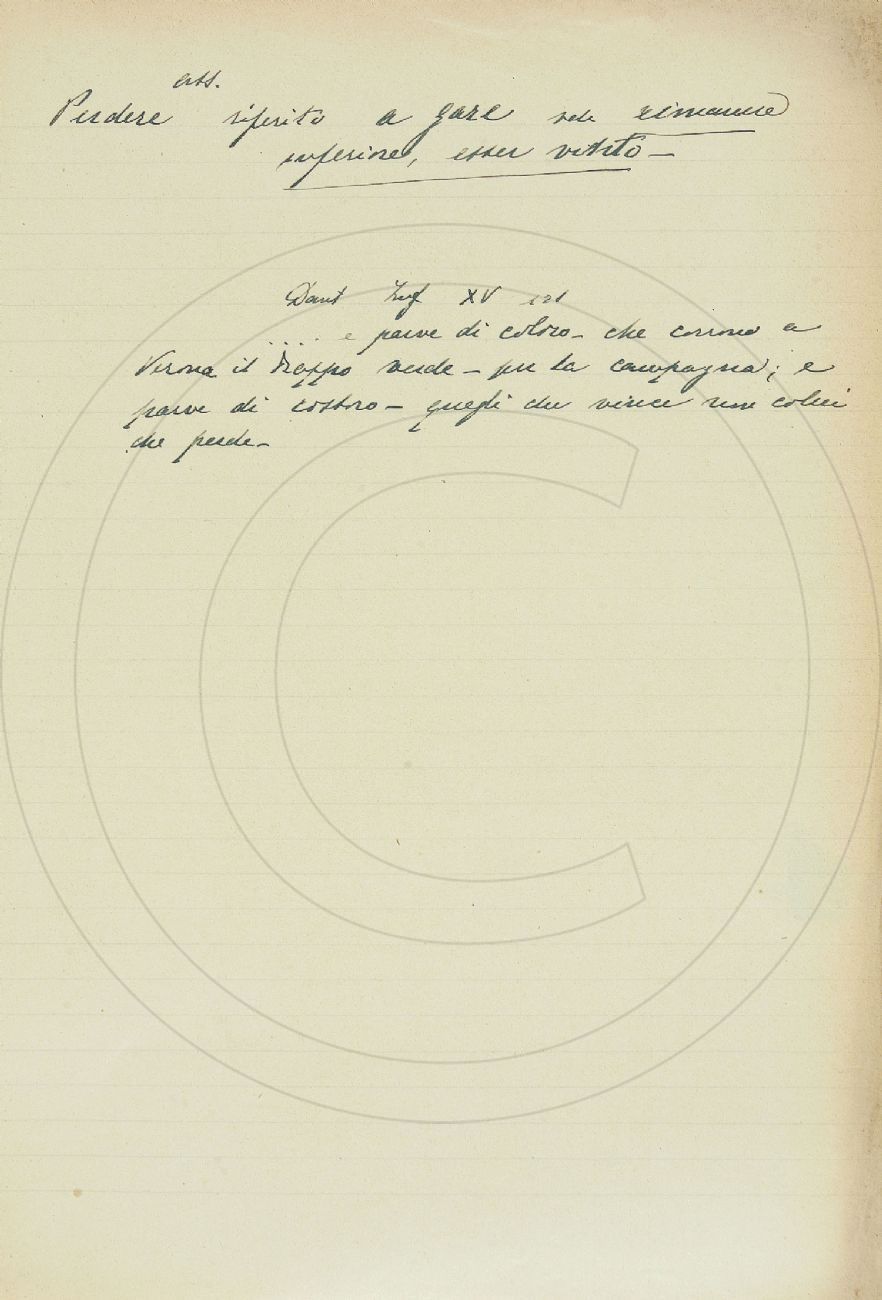 ass.
Perdere riferito a gare vale rimanere
inferiore, esser vinto —
Dant Inf XV 121
.... e parve di coloro - che corrono a
Verona il drappo verde - per la campagna; e
parve di costoro - quegli che vince non colui
che perde -